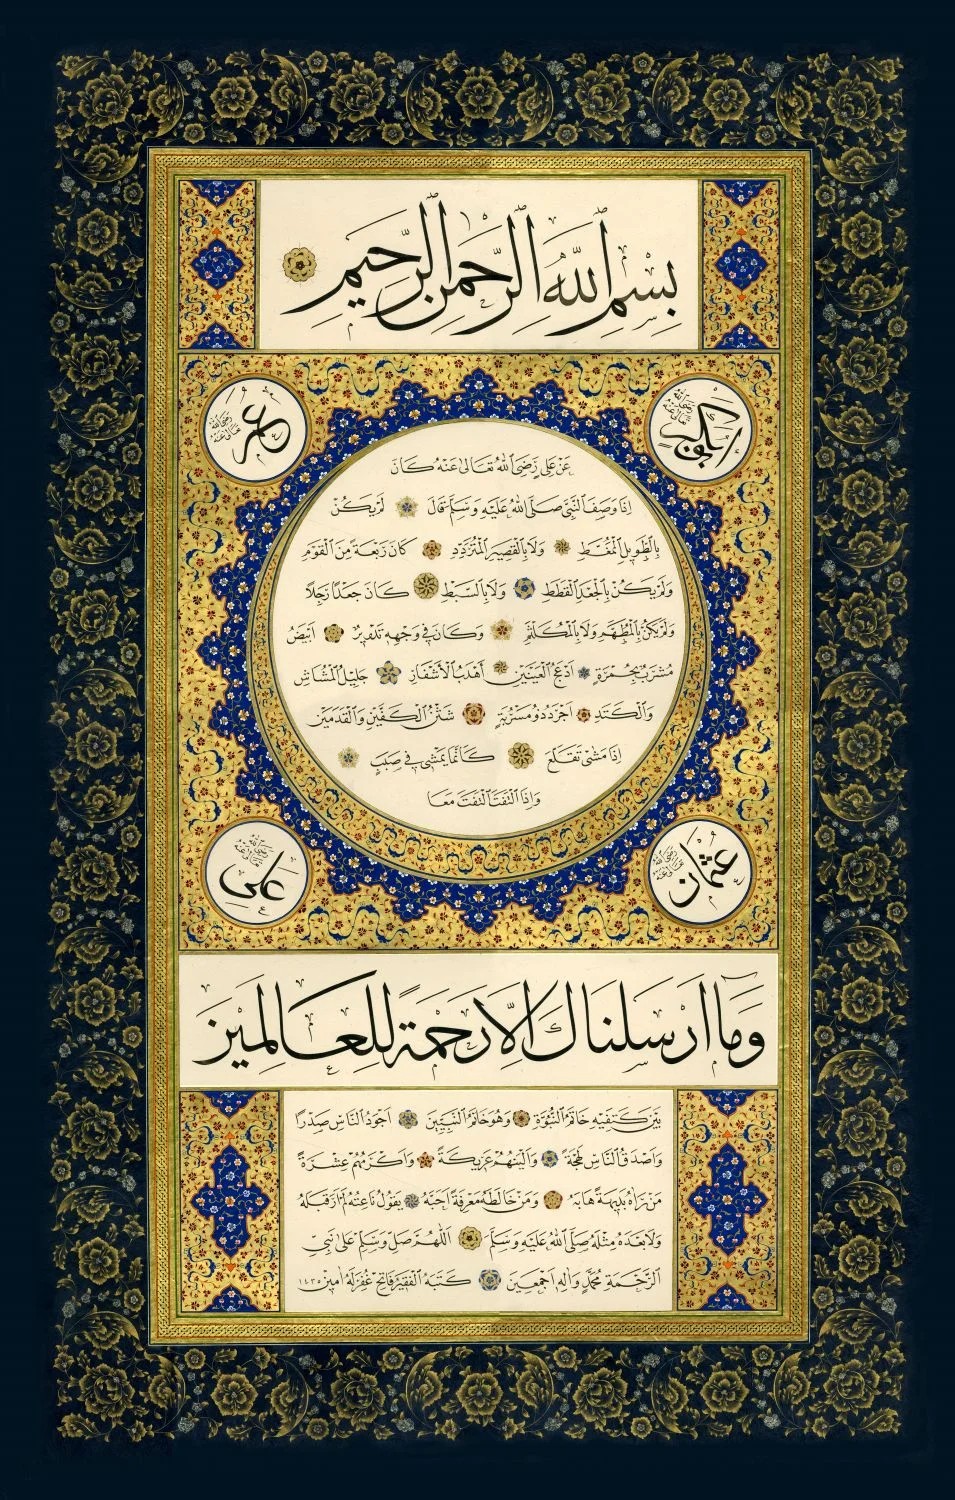 بِسْمِ اللَّهِ الرَّحْمَنِ الرَّحِيمِ
ابوبكر رضي الله تعالى عنه
عمر رضي الله تعالى عنه
عن علي رضي الله تعالى عنه كان
اذا وصف النبي صلى الله عليه وسلم قال لم يكن
بالطويل الممغط ولا بالقصير المتردد كان ربعة من القوم
ولم يكن بالجعد القطط ولا بالسبط كان جعدا رجلا
ولم يكن بالمطهم ولا بالمكلثم وكان في وجهه تدوير ابيض
مشرب بحمرة ادعج العينين اهدب الاشفار جليل المشاش
والكتد اجرد ذو مسربة شثن الكفين والقدمين
اذا مشى تقلع كانما يمشي في صبب
واذا التفت التفت معا
عثمان رضي الله تعالى عنه
علي رضي الله تعالى عنه
وما ارسلناك الا رحمة للعالمين
بين كتفيه خاتم النبوة وهو خاتم النبيين اجود الناس صدرا
واصدق الناس لهجة والينهم عريكة واكرمهم عشرة
من راه بديهة هابه ومن خالطه معرفة احبه يقول ناعته لم ار قبله
ولا بعده مثله صلى الله عليه وسلم اللهم صل وسلم على نبي
الرحمة محمد واله اجمعين كتبه الفقير فاتح غفر له امين ١٤٣٥